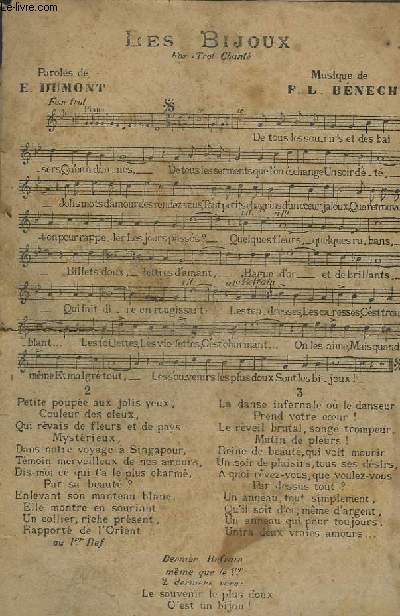 LES BIJOUX
Fox-Trot Chanté
Paroles de
E. DUMONT
Musique de
F. L. BENECH
Fox trot
Piano
De tous les sourirs et des bai
sers Qu'on a donnés, De tous les serments que l'on échange Un soir d'été,
Jolis mots d'amour des rendez-vous, Tout petits chagrins d'un cœur jaloux, Que retrouve
t-on pour rappeler Les jours passés? Quelques fleurs, quelques rubans,
Billets doux, lettres d'amant, Bague d'or et de brillants
rit. au Refrain
Qui fait dire en rougissant. Les tendresses, Les caresses, C'est trou
blant... Les toilettes, Les violettes, C'est charmant... On les aime, Mais quand
même Et malgré tout, Les souvenirs les plus doux Sont les bijoux!
2
Petite poupée aux jolis yeux,
Couleur des cieux,
Qui rêvais de fleurs et de pays
Mystérieux,
Dans notre voyage à Singapour,
Témoin merveilleux de nos amours,
Dis-moi ce qui t'a le plus charmé,
Par sa beauté?
Enlevant son manteau blanc,
Elle montre en souriant
Un collier, riche présent,
Rapporté de l'Orient
au 1er Ref
3
La danse infernale où le danseur
Prend votre cœur!
Le réveil brutal, songe trompeur,
Matin de pleurs!
Reine de beauté, qui voit mourir
Un soir de plaisirs, tous ses désirs,
A quoi rêvez-vous, que voulez-vous
Par dessus tout?
Un anneau, tout simplement,
Qu'il soit d'or, même d'argent,
Un anneau qui pour toujours,
Unira deux vraies amours...
Dernier Refrain
même que le 1er
2 derniers vers:
Le souvenir le plus doux
C'est un bijou!